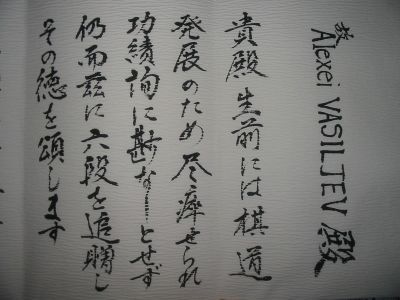 故 Alexei VASILJEV 殿
貴殿生前には棋道
発展のため尽瘁せられ
功績洵に尠なしとせず
仍而茲に六段を追贈し
その徳を頌します